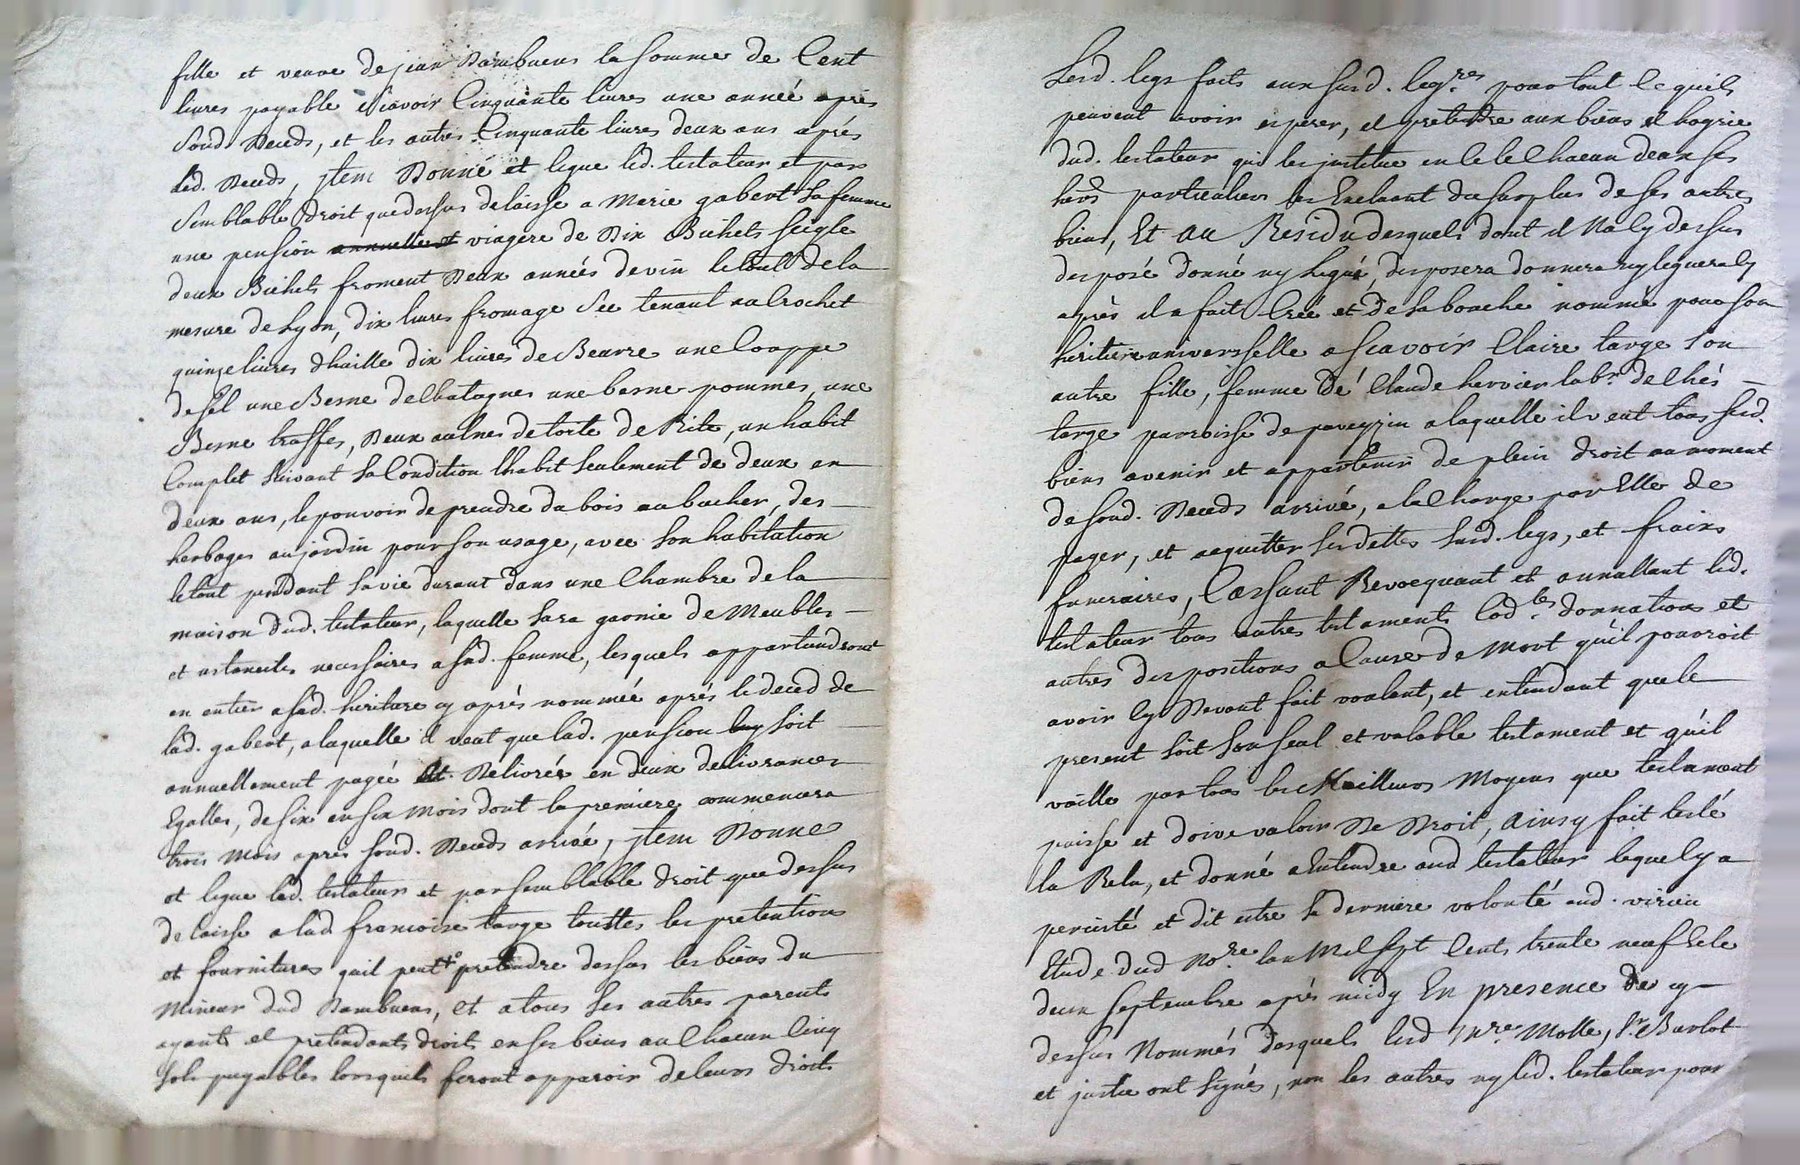 fille et veuve de jean Bambuens la somme de Cent
livres payable scavoir Cinquante livres une année après
Sond. Deceds, et les autres Cinquante livres deux ans après
led. Deceds, jtem Donné et legue led. testateur et par
semblable Droit que dessus delaisse a Marie gabert Sa femme
une pension viagere de Dix Bichets seigle
deux Bichets froment Deux années de vin le tout de la
mesure de Lyon, dix livres fromage Sec tenant au Crochet
quinze livres dhuille dix livres de Beurre une Couppe
de sel une Besne de Chatagnes une besne pommes, une
Besne truffes, Deux aulnes de toile de Rite, un habit
Complet Suivant Sa Condition lhabit Seulement de deux en
deux ans, le pouvoir de prendre du bois au bucher, des
herbages au jardin pour Son usage, avec Son habitation
le tout pendant Sa vie durant dans une Chambre de la
maison dud. testateur, laquelle Sera garnie de Meubles
et ustancilles necessaires a sad. femme, lesquels appartiendront
en entier a sad. heritiere cy après nommée après le deced de
lad. gabert, a laquelle il veut que lad. pension soit
annuellement payée et Delivrée en deux delivrances
Egalles, de six en six Mois dont la premiere commencera
trois Mois après Sond. Deceds arrivé, jtem Donne
et legue led. testateur et par semblable droit que dessus
delaisse a lad. francoise targe touttes les pretentions
et fournitures quil peut pretendre dessus les biens du
Mineur dud Bambuens, et a tous Ses autres parents
ayants et pretendants droits en ses biens au Chacun Cinq
Sols payables lorsquils feront apparoir de leurs droits
Lesd. legs faits aux susd. leg.res pour tout ce quils
peuvent avoir esperer, et pretendre aux biens et hoyrie
dud. testateur qui les jnstitue en Cele Chacun deux ses
hers particuliers les Excluant du Surplus de ses autres
biens, Et au Residu desquels dont il Na cy dessus
disposé donné ny legué, disposera donnera ny leguera cy
après il a fait Créé et de Sa bouche nommé pour Son
heritiere universselle a scavoir Claire targe Son
autre fille, femme de Claude hervier labr. de Chés
targe parroisse de paveyzin a laquelle il veut tous Sesd.
biens avenir et appartenir de plein droit au moment
de Sond. Deceds arrivé, a la Charge par Elle de
payer, et acquitter Ses dettes Susd. legs, et fraix
funeraires, Cassant Revocquant et annullant led.
testateur tous autres testaments Cod.les donnations et
autres dispositions a Cause de Mort qu'il pourroit
avoir Cy Devant fait voulant, et entendant que le
present Soit Son Seul et valable testament et qu'il
vaille par tous les Meilleurs Moyens que testament
puisse et doive valoir De Droit, Ainsy fait testé
la Relu, et donné a Entendre aud testateur lequel y a
persisté et dit estre Sa derniere volonté aud. virieu
Etude dud No.re lan Mil sept Cents trente neuf et le
deux Septembre après midy En presence de cy
dessus Nommés desquels lesd Mre. Molle, Sr. Burlot
et justie ont Signés, non les autres ny led. testateur pour